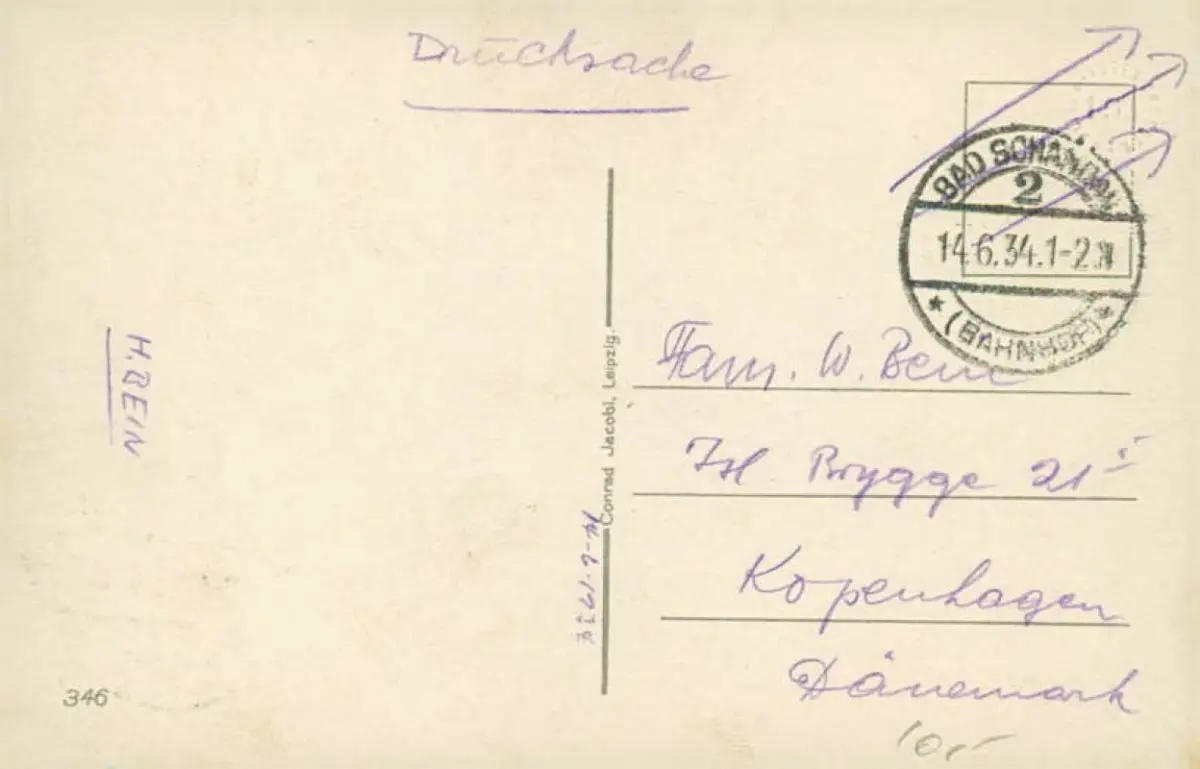 Drucksache
BAD SCHANDAU
2
14.6.34.1-2 N
* (BAHNHOF) *
H. BEIN
Conrad Jacobi, Leipzig.
Fam. W. Bein
Isl. Brygge 21 I
Kopenhagen
Dänemark
346